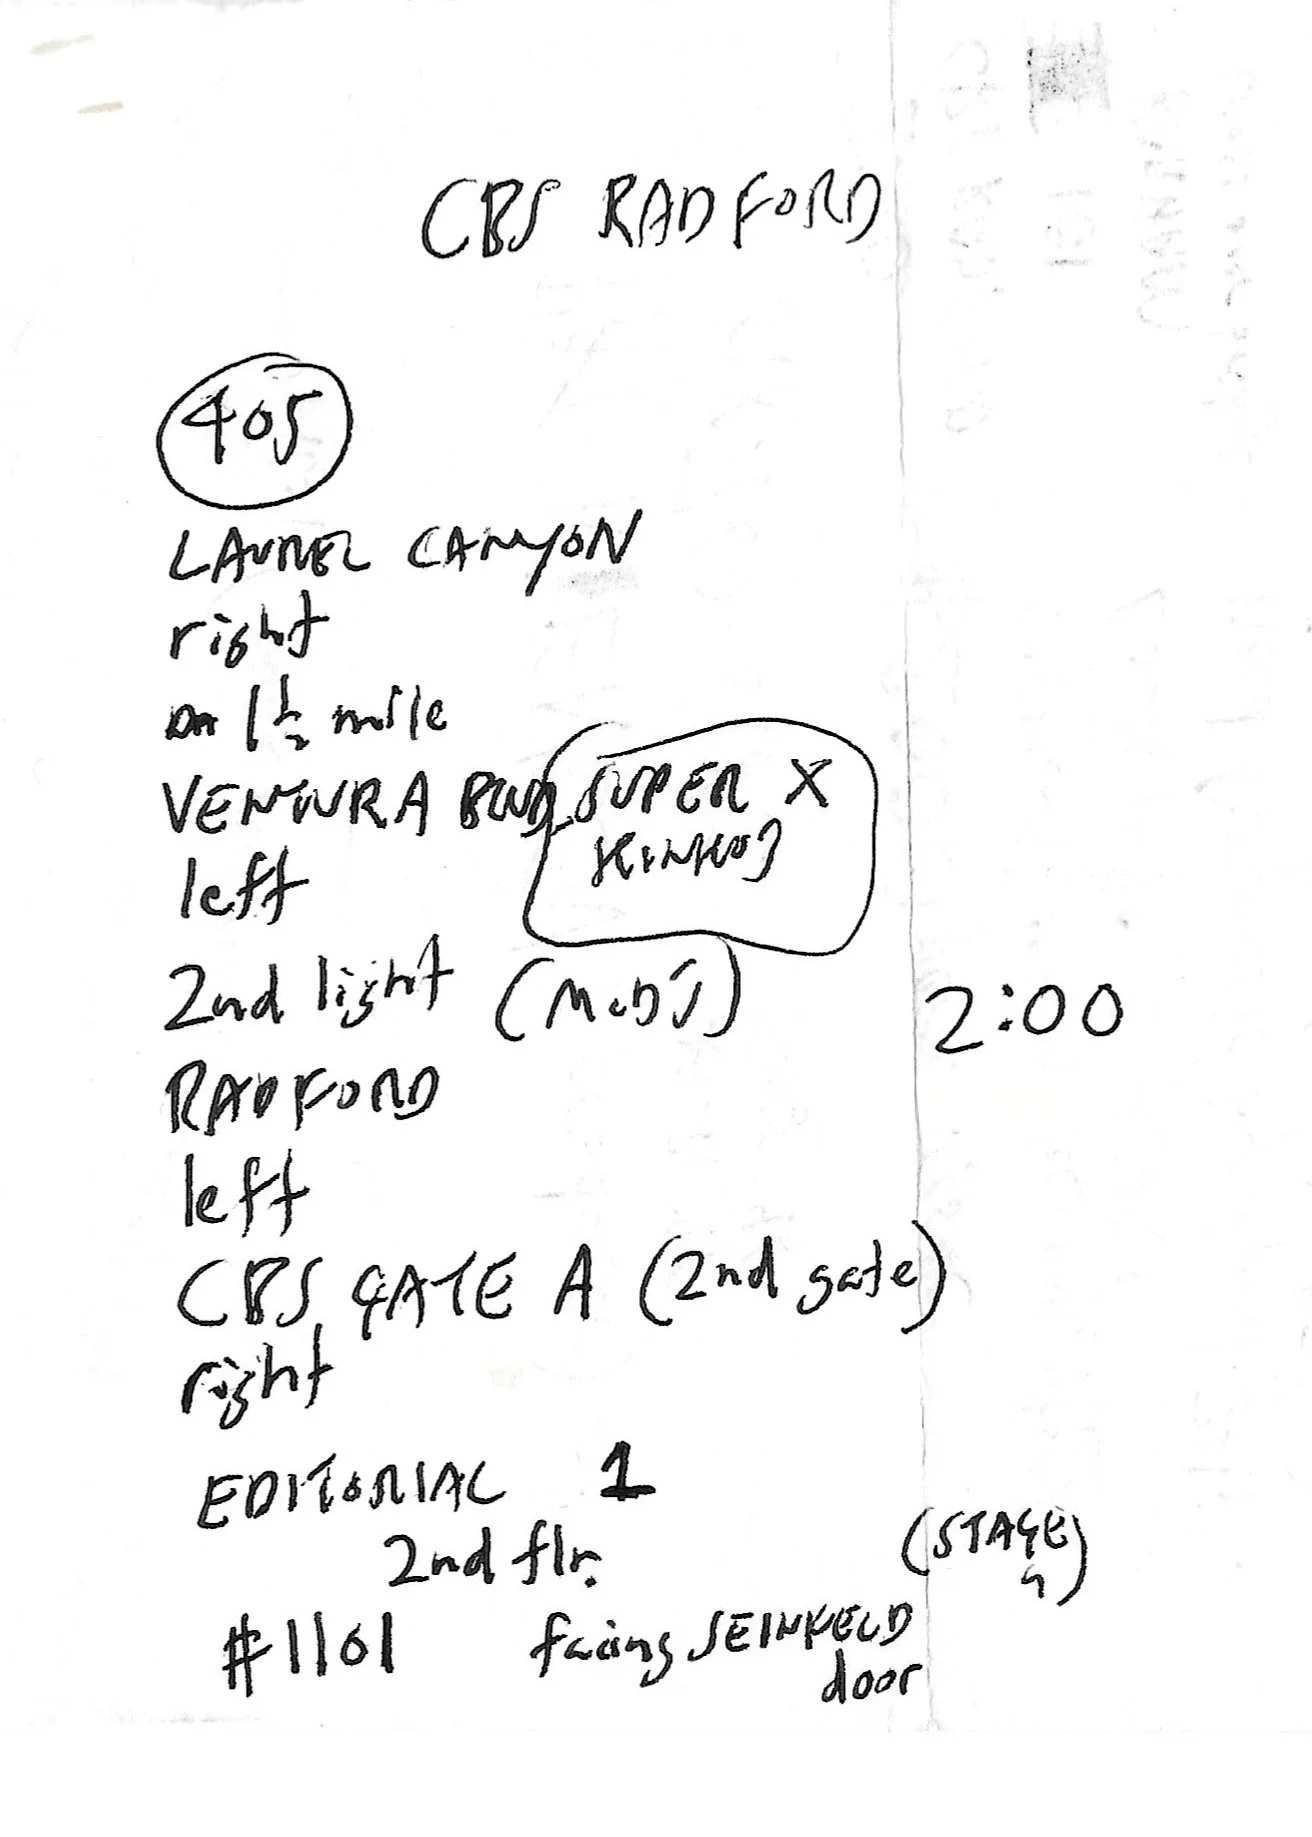 CBS RADFORD
405
LAUREL CANYON
right
on 1½ mile
VENTURA BLVD SUPER X
KINKOS
left
2nd light (McD's)
2:00
RADFORD
left
CBS GATE A (2nd gate)
right
EDITORIAL 1
2nd flr.
(STAGE
9)
#1101 facing SEINFELD
door